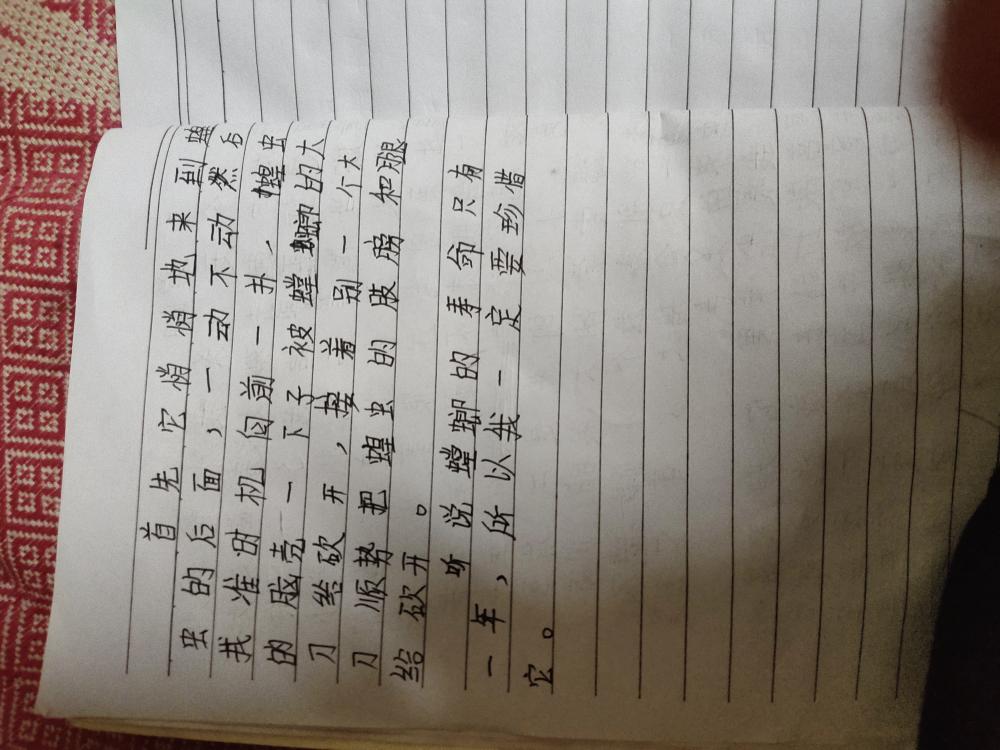 首先它悄悄地来到蝗
虫的后面，一动不动然后
我准时机向前一扑，蝗虫
的脑壳一下子被螳螂的大
刀给砍开，接着别一个大
刀顺势把蝗虫的肢膀和腿
给砍开。
听说螳螂的寿命只有
一年，所以我一定要珍惜
它。